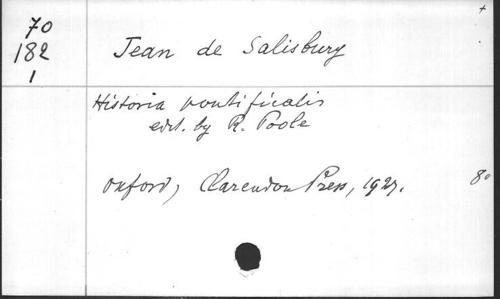 +
70
182
1
Jean de Salisbury
Historia pontificalis
edit. by R. Poole
Oxford, Clarendon Press, 1927.
8°